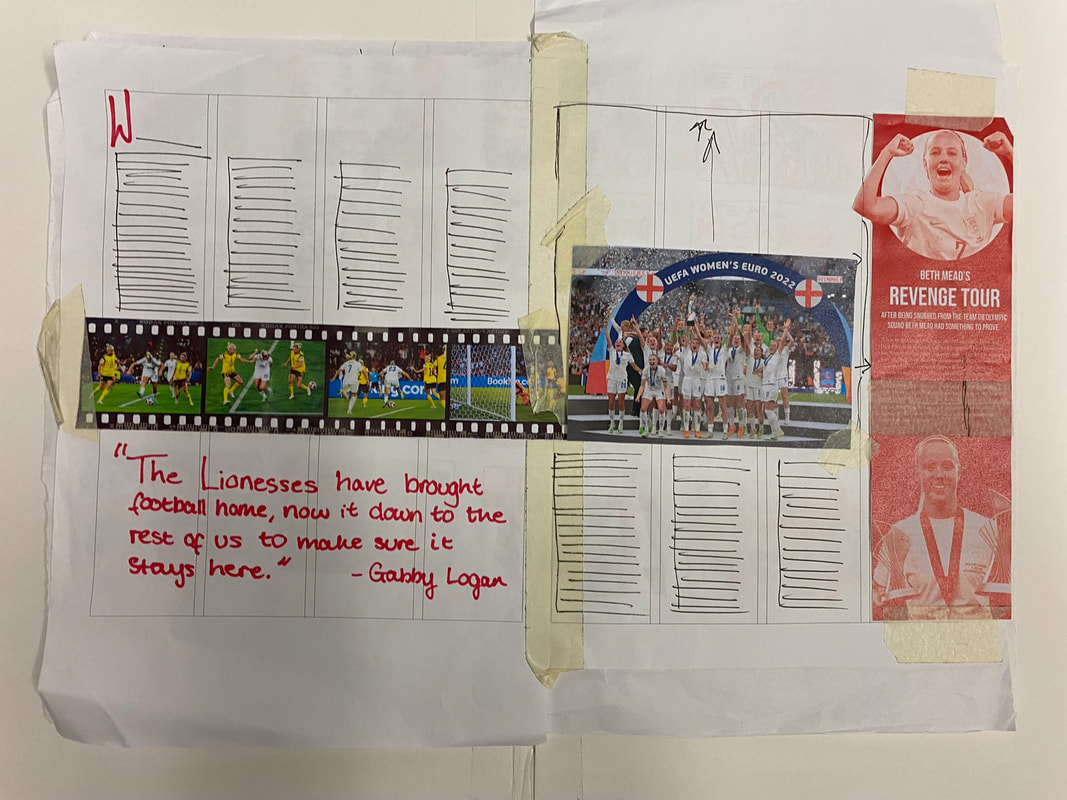 W
"The Lionesses have brought
football home, now it down to the
rest of us to make sure it
stays here."
- Gabby Logan
Book
s.com
UEFA WOMEN'S EURO 2022
WINNER
BETH MEAD'S
REVENGE TOUR
AFTER BEING SNUBBED FROM THE TEAM GB OLYMPIC
SQUAD BETH MEAD HAD SOMETHING TO PROVE